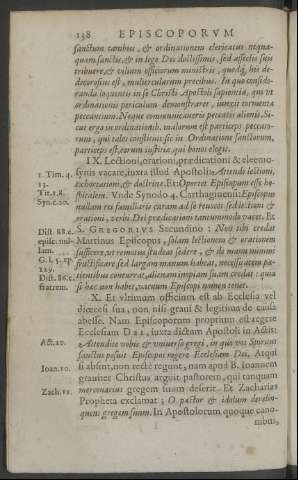 138 EPISCOPORVM
sanctum canibus, & ordinationem clericatus nequa-
quam sanctis, & in lege Dei doctissimis, sed assectis suis
tribuere, & vilium officiorum ministris, quodq́, his de-
decorosius est, muliercularum precibus. In quo conside-
randa loquentis in se Christi Apostoli sapientia, qui vt
ordinationis periculum demonstraret, iunxit tormenta
peccantium. Neque communicaueris peccatis alienis. Si-
cut ergo in ordinationib. malorum est particeps peccato-
rum, qui tales constituit: sic in Ordinatione sanctorum,
particeps est eorum iustitiæ, qui bonos elegit.
IX. Lectioni, orationi, prædicationi & eleemo-
1. Tim. 4. synis vacare, iuxta illud Apostoli: Attende lectioni,
13. exhortationi, & doctrinæ. Et: Oportet Episcopum esse ho-
Tit. 1. 8. spitalem. Vnde Synodo 4. Carthaginensi: Episcopus
Syn. c. 20. nullam rei familiaris curam ad se reuocet: sed lectioni &
orationi, & verbi Dei prædicationi tantummodo vacet. Et
Dist. 88. c. S. GREGORIVS Secundino: Non tibi credat
episc. nul- Martinus Episcopus, solam lectionem & orationem
lam. sufficere, vt remotus studeat sedere, & de manu minimè
G. l. 5. ep. fructificare, sed largam manum habeat, necessitatem pa-
229. tientibus concurrat, alienam inopiam suam credat: quia
Dist. 86. c. si hæc non habet, vacuum Episcopi nomen tenet.
fratrem.
X. Et vltimum officium est ab Ecclesia vel
diœcesi sua, non nisi graui & legitima de causa
abesse. Nam Episcoporum proprium est regere
Ecclesiam Dei, iuxta dictum Apostoli in Actis:
Act. 20. Attendite vobis & vniuerso gregi, in quo vos Spiritus
sanctus posuit Episcopos regere Ecclesiam Dei. Atqui
Ioan. 10. si absint, non rectè regunt, nam apud B. Ioannem
grauiter Christus arguit pastorem, qui tanquam
Zach. 11. mercenarius gregem suum deserit. Et Zacharias
Propheta exclamat; O pastor & idolum derelin-
quens gregem suum. In Apostolorum quoque cano-
nibus,